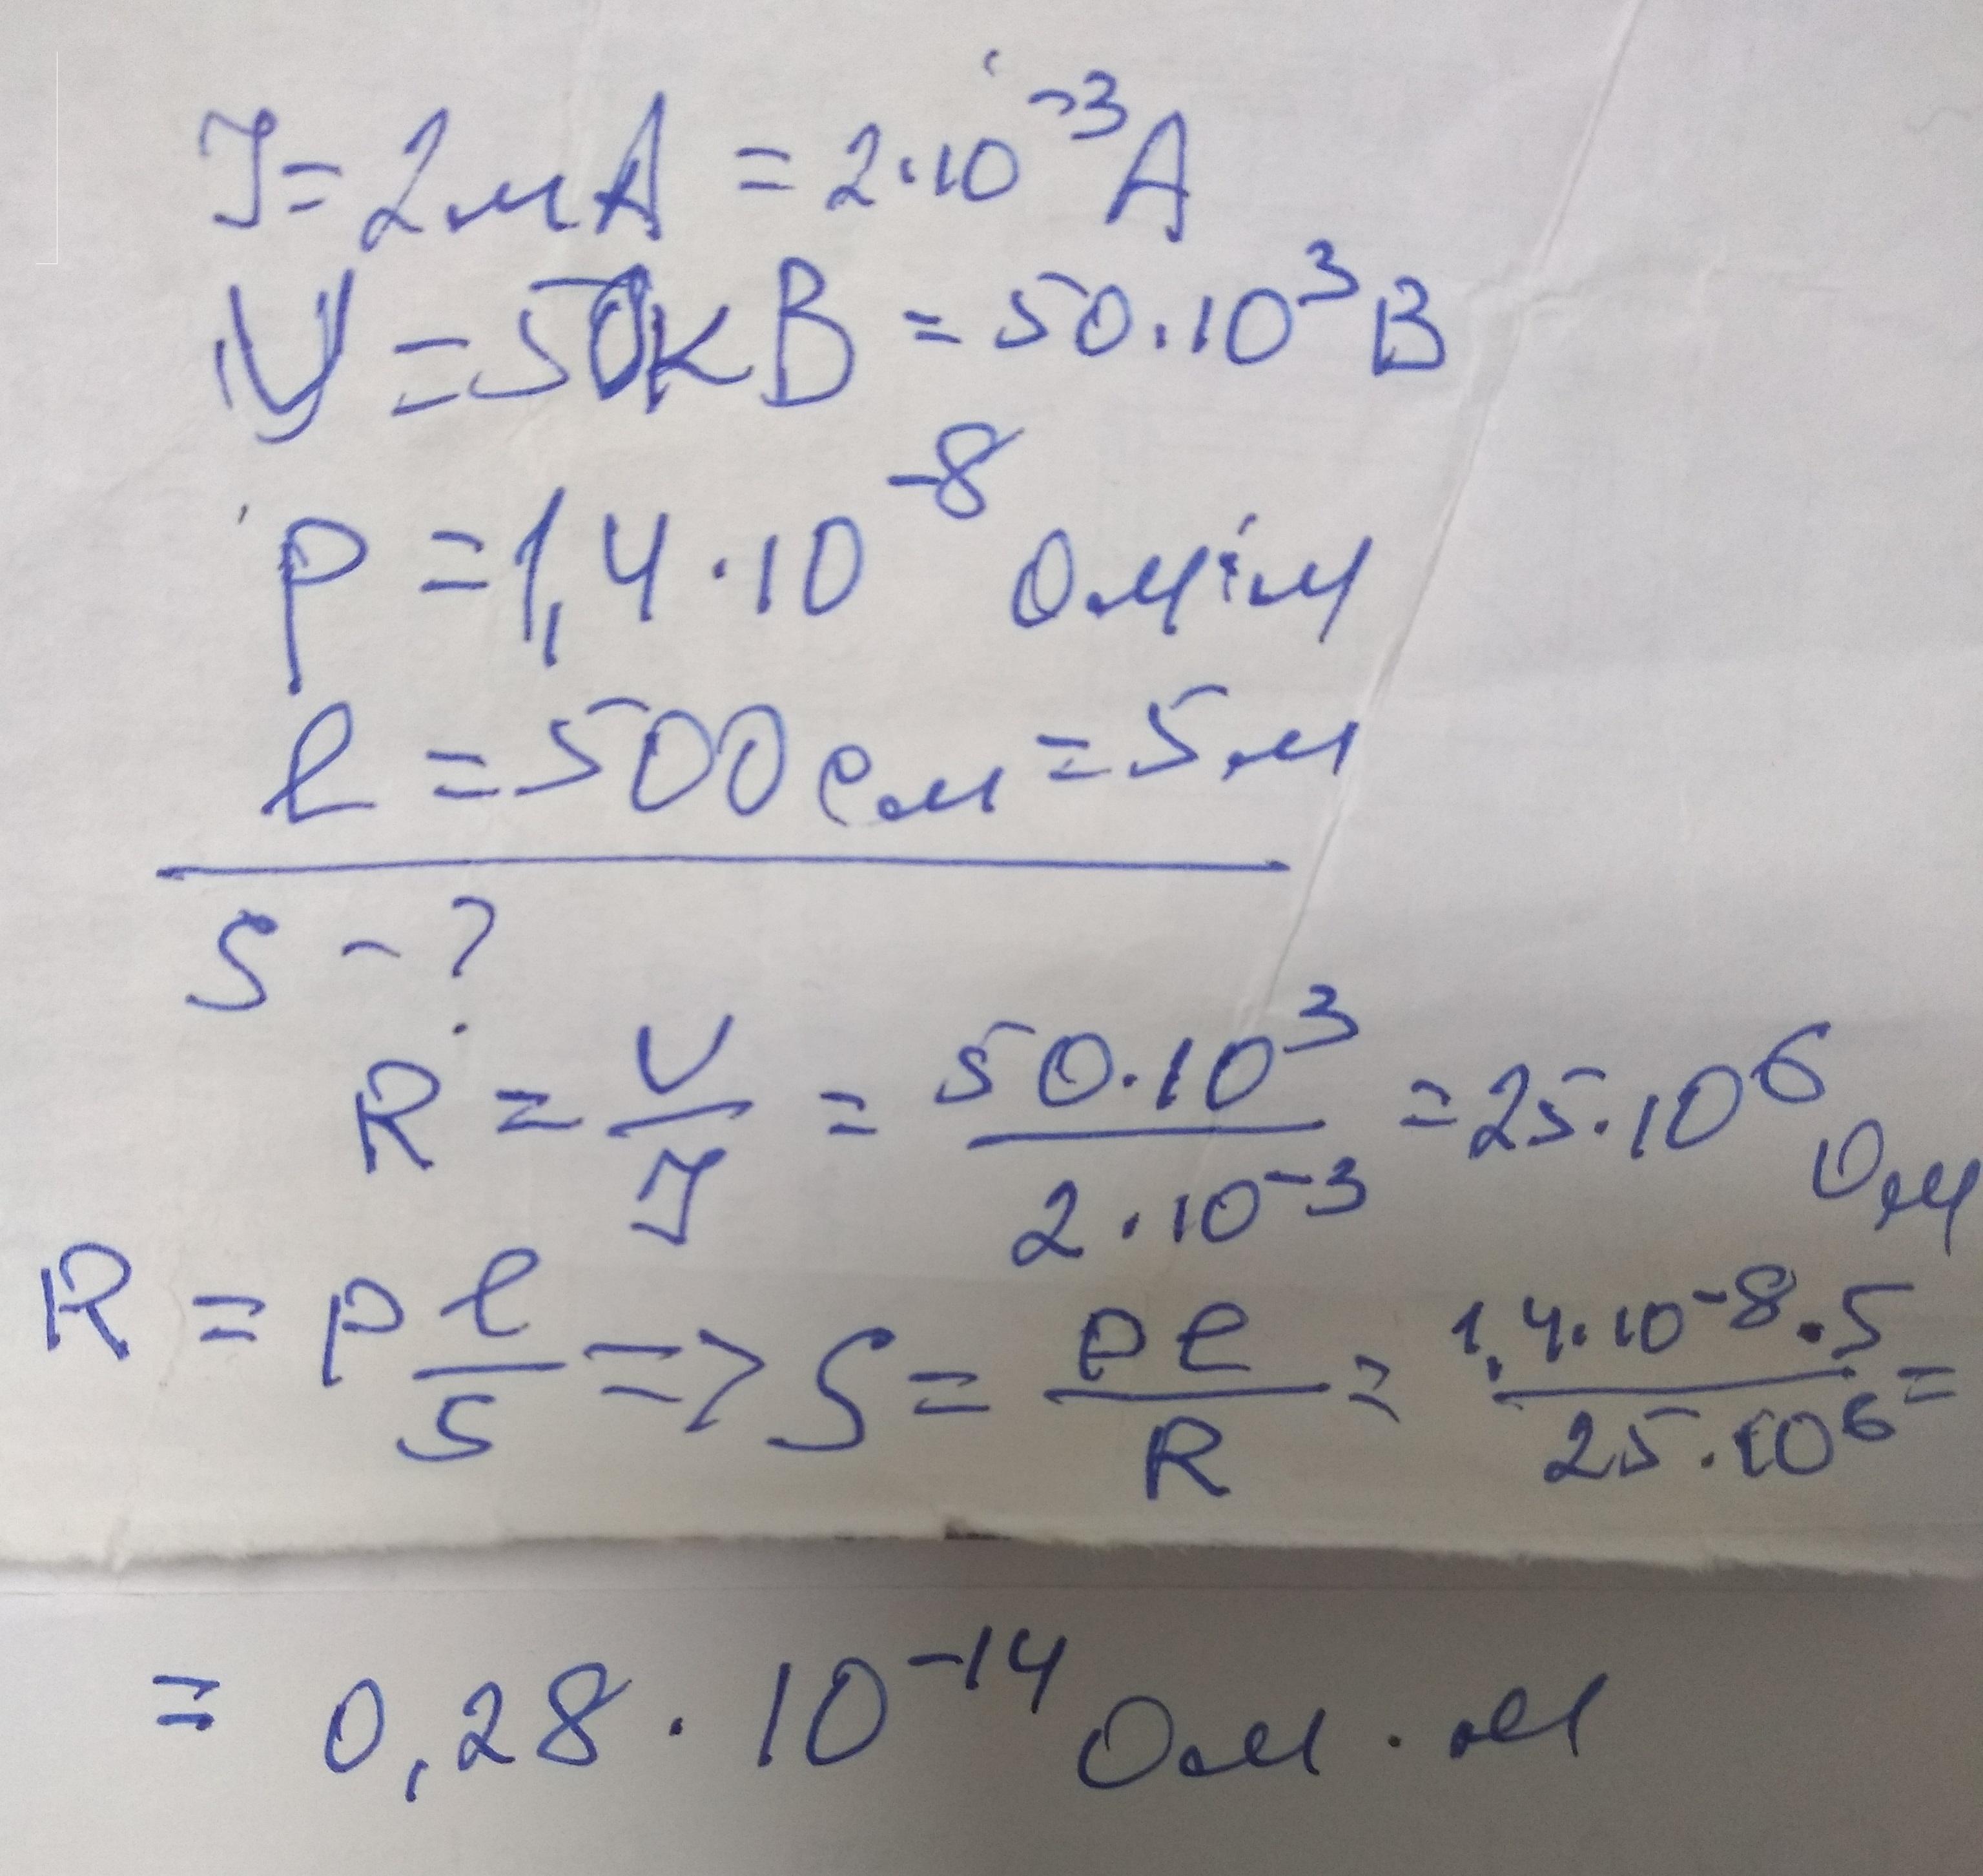 I = 2 мА = 2·10⁻³ А
U = 50 кВ = 50·10³ В
ρ = 1,4·10⁻⁸ Ом·м
l = 500 см = 5 м
S - ?
R = U/I = 50·10³/2·10⁻³ = 25·10⁶ Ом
R = ρ l/S => S = ρl/R = 1,4·10⁻⁸·5/25·10⁶ =
= 0,28·10⁻¹⁴ Ом·м